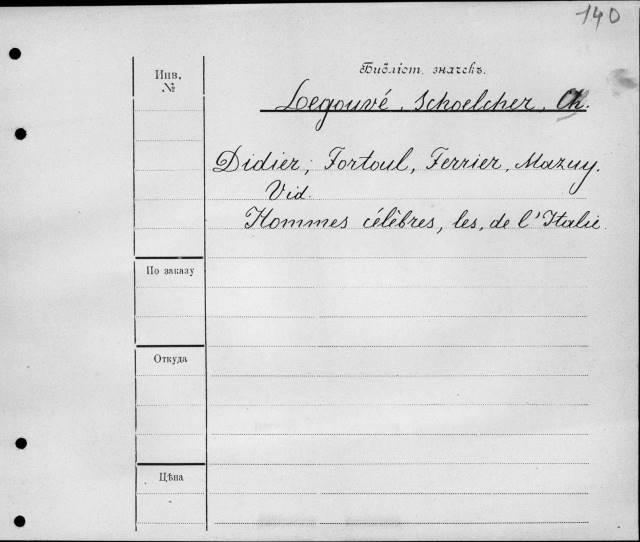 140
Библіот. значекъ.
Инв.
№
Legouvé. Schoelcher. Ch.
Didier, Fortoul, Ferrier, Mazuy.
Vid.
Hommes célèbres, les, de l'Italie
По заказу
Откуда
Цѣна